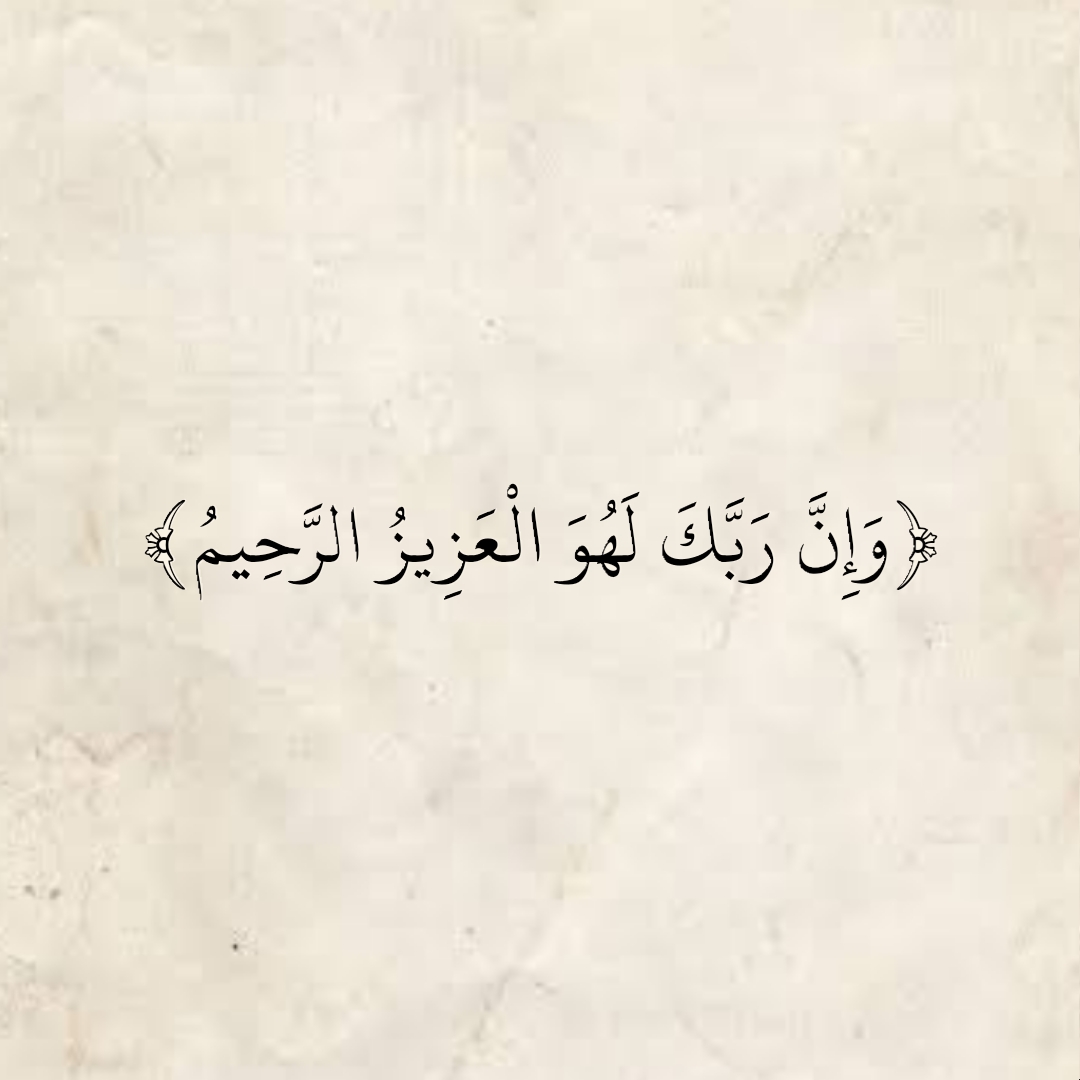 ﴿وَإِنَّ رَبَّكَ لَهُوَ الْعَزِيزُ الرَّحِيمُ﴾